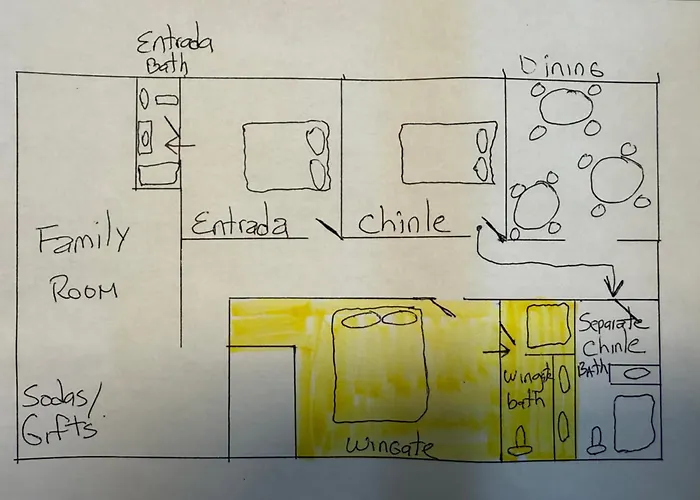 Entrada
Bath
Dining
Entrada
Chinle
Family
Room
Separate
Chinle
Bath
Wingate
bath
Sodas/
Gifts
Wingate